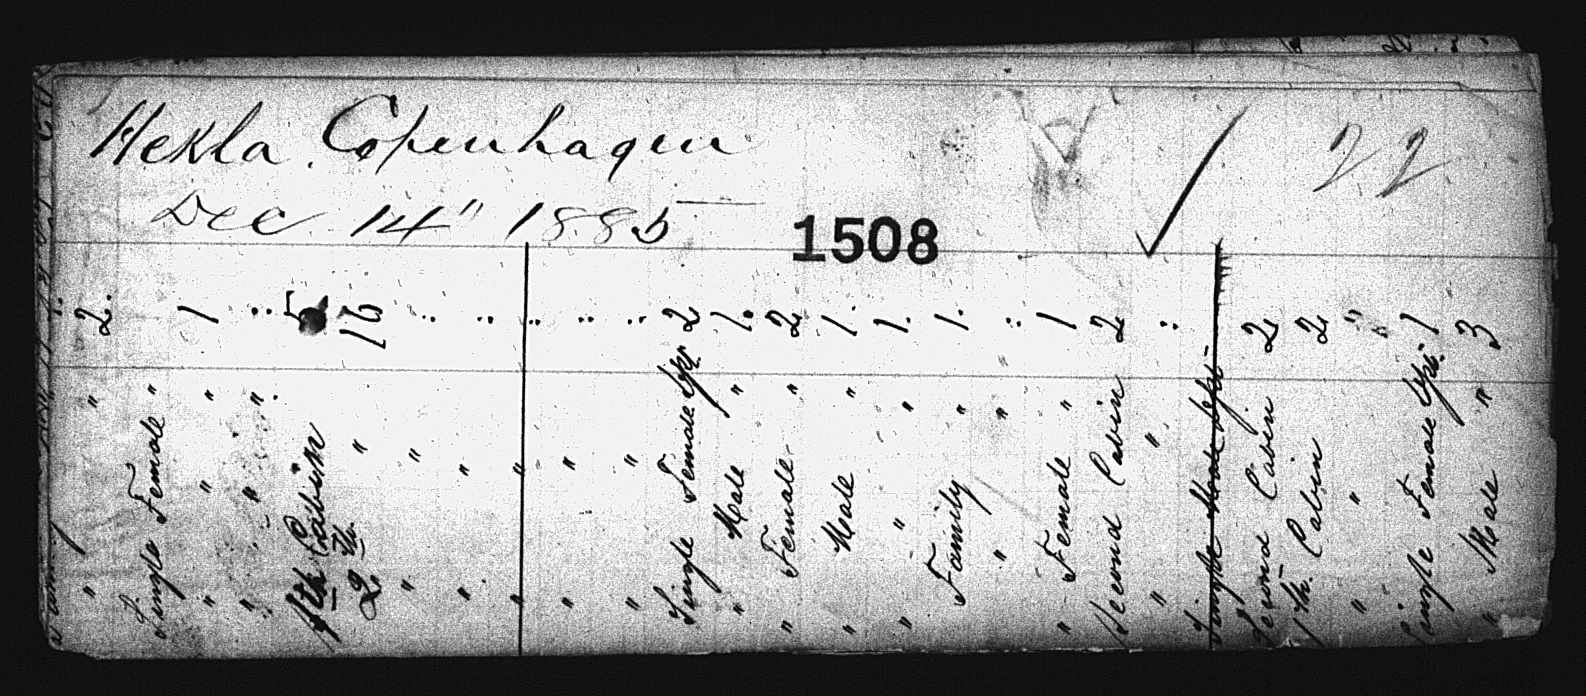 Hekla Copenhagen
Dec 14" 1885
1508
22
" " 2.
Single Female "
" " " 1
" " " :
1th Cabin 5
2 Th " 16
" " :
" " :
" " :
" " :
" " :
Single Female Spr 2
" Male " 1.
" Female " 2
" Male " 1.
" " " 1.
Family " 1.
" " :
" Female " 1
Second Cabin 2
" " :
Second Cabin 2
1th. Cabin 2
" " "
Single Female Spr. 1
" Male " 3